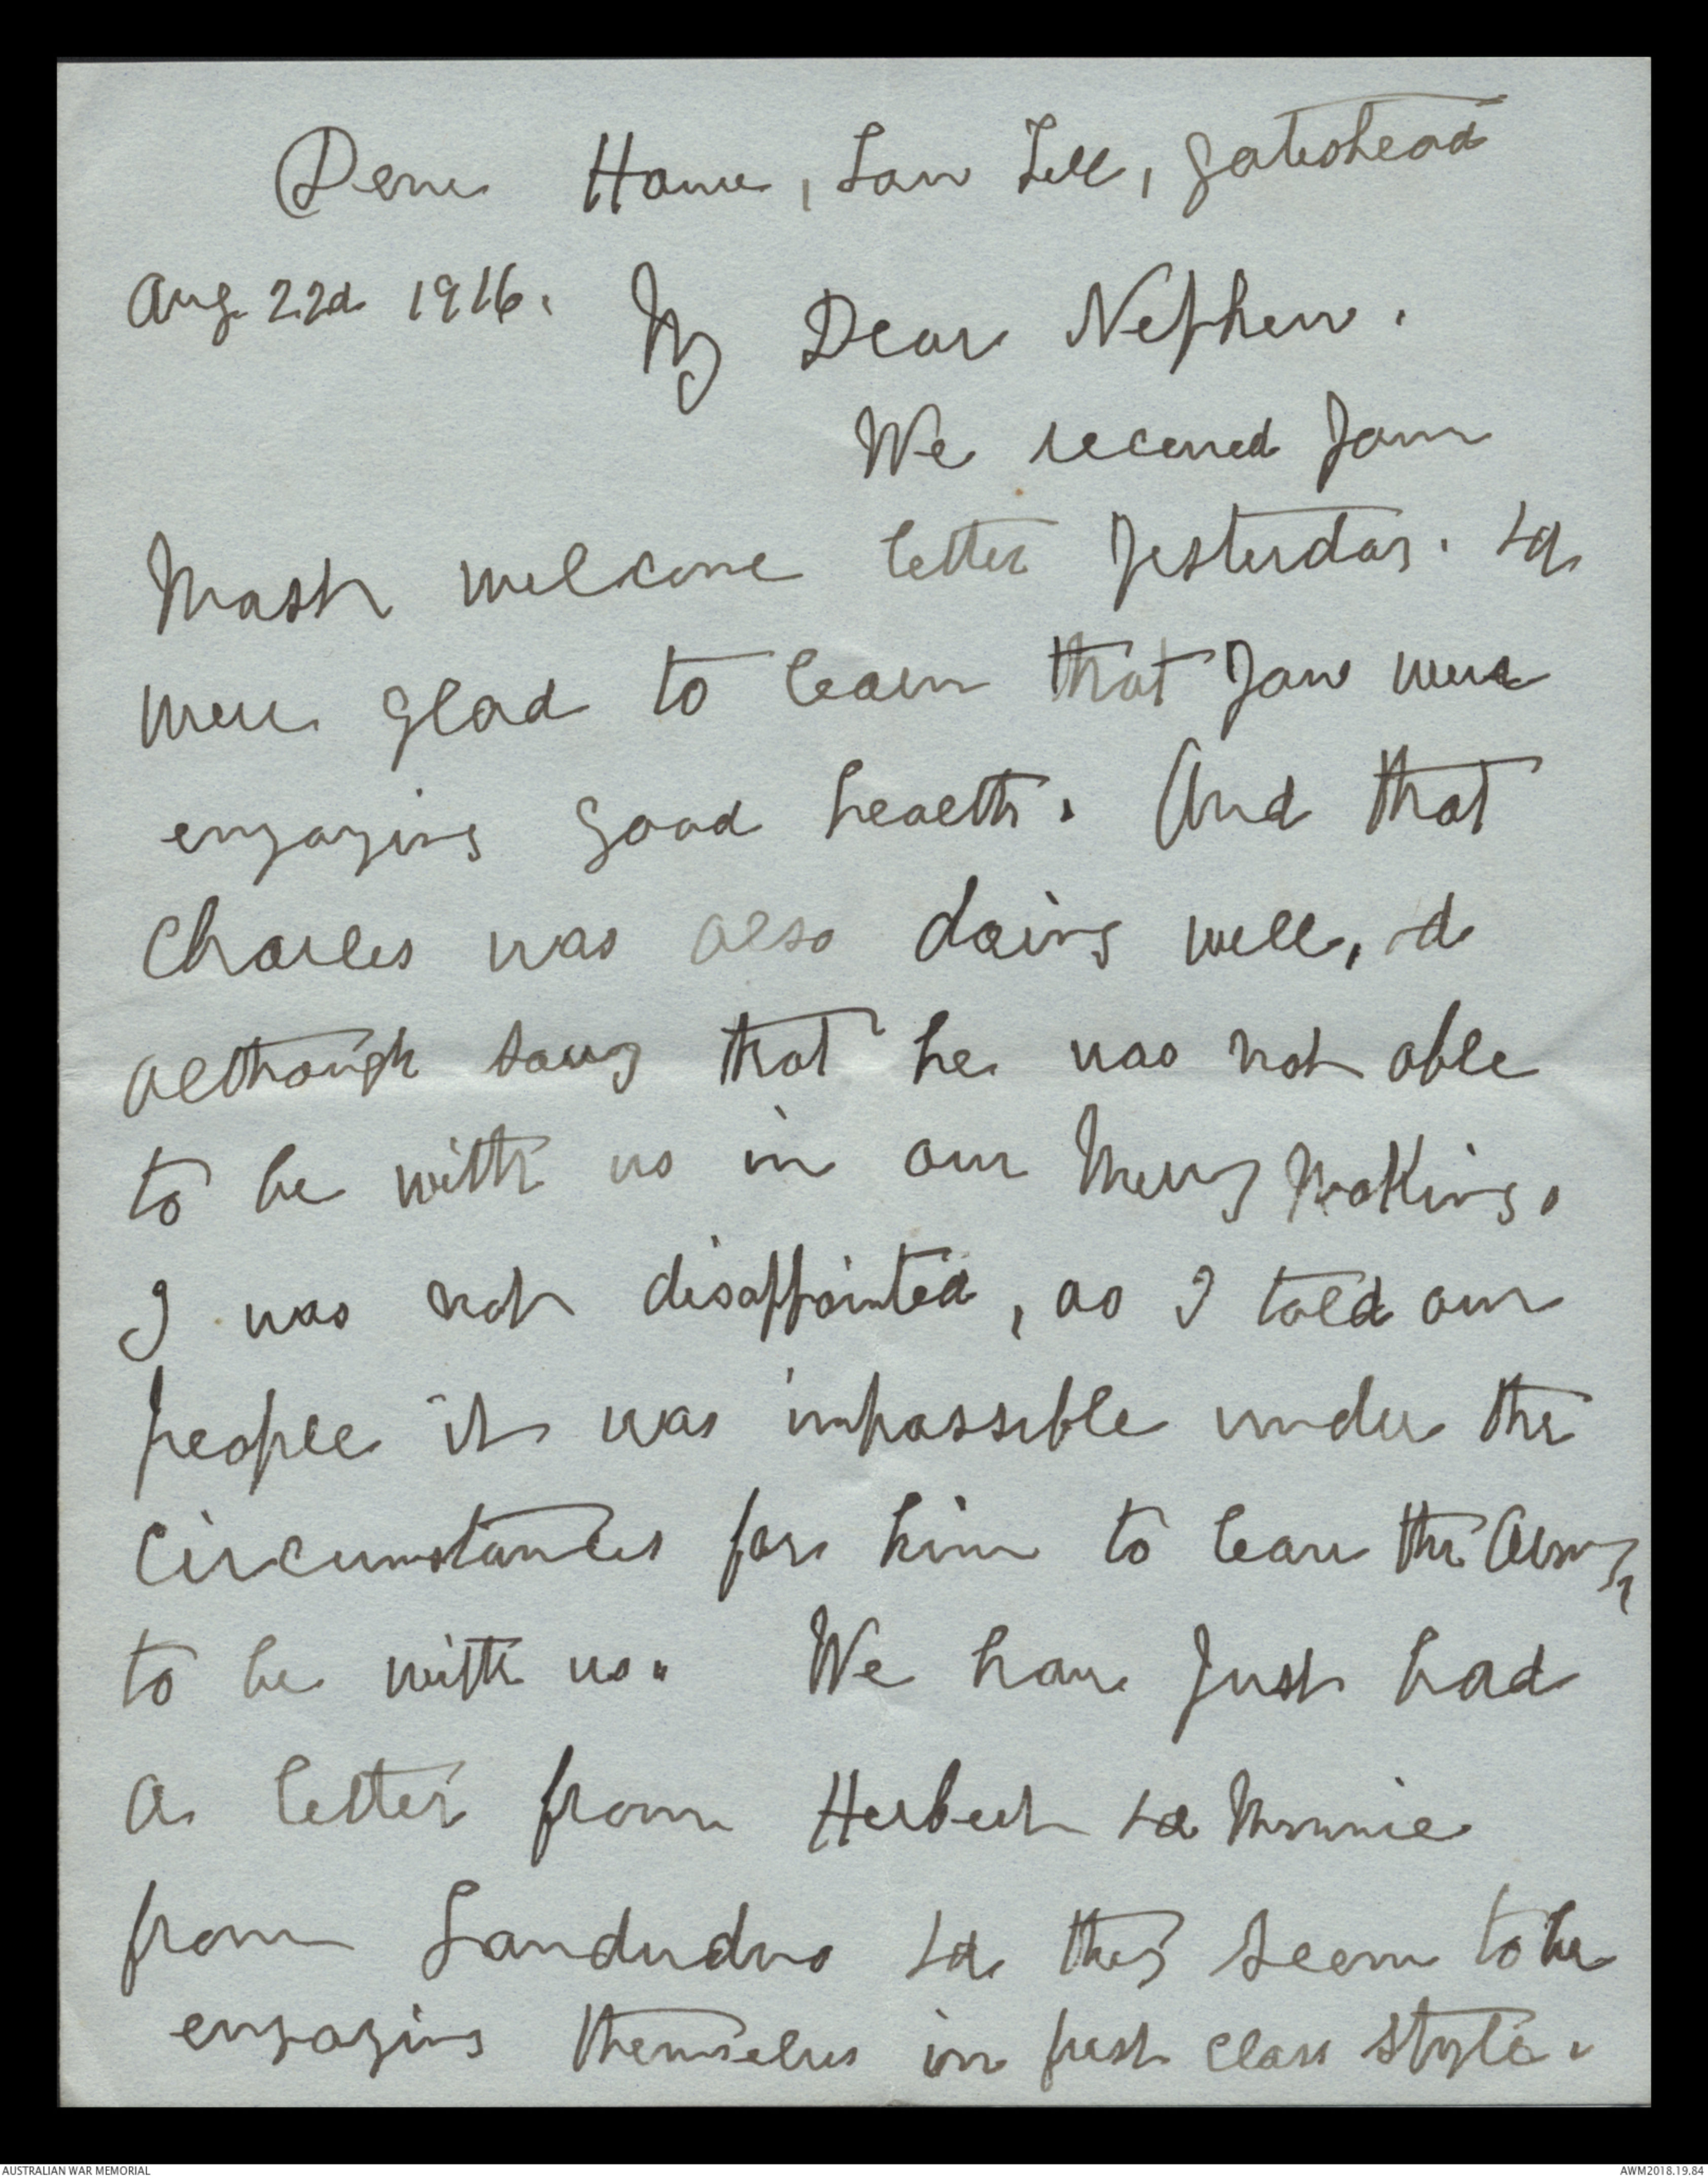 Dene House, Low Fell, Gateshead
Aug. 22d 1916. My Dear Nephew.
We received your
most welcome letter yesterday. &
were glad to learn that you were
enjoying good health. And that
Charles was also doing well, &
although sorry that he was not able
to be with us in our Merry Making.
I was not disappointed, as I told our
people it was impossible under the
circumstances for him to leave the Army,
to be with us. We have just had
a letter from Herbert & Minnie
from Landudno & they seem to be
enjoying themselves in first class style.
AUSTRALIAN WAR MEMORIAL
AWM2018.19.84